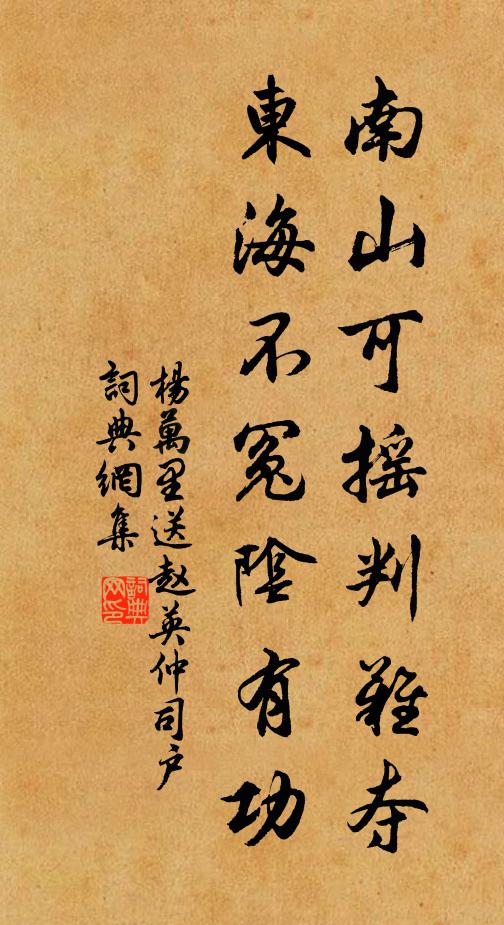 南山可摇判難夺
東海不冤陰有功
楊萬里送赵英仲司户
詞典網集
詞典網印